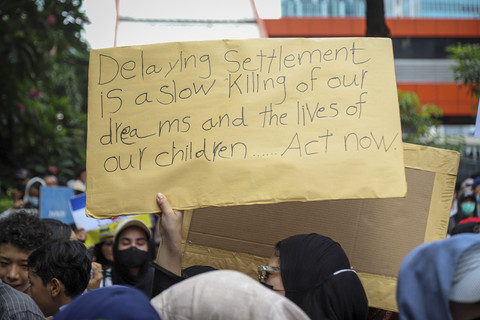 Delaying Settlement
is a slow killing of our
dreams and the lives of
our children ...... Act now.